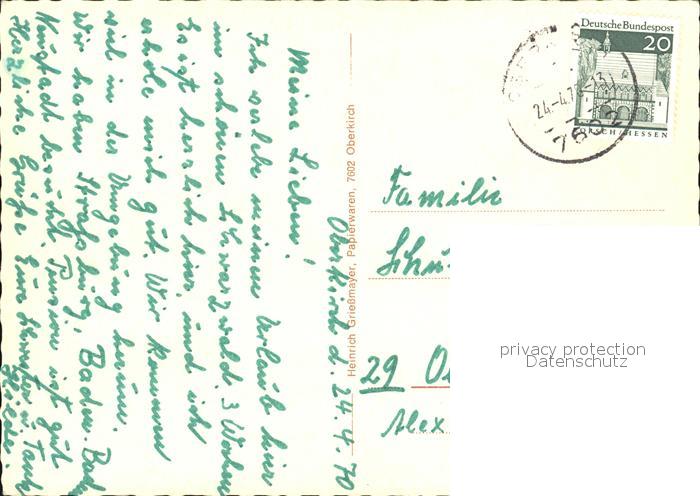 Oberkirch d. 24.4.70
Meine Lieben!
Ich verlebe meinen Urlaub hier
im schönen Schwarzwald. 3 Wochen
Es ist herrlich hier und ich
erhole mich gut. Wir kommen
viel in der Umgebung herum.
Wir haben Straßburg, Baden-Bad
Neustadt besucht. Pension ist gut
Herzliche Grüße Eure Schwester u. Tante
Heinrich Grießmayer, Papierwaren, 7602 Oberkirch
Deutsche Bundespost
20
LORSCH/HESSEN
24.-4.70-13
7602
Familie
Schu
29 O
Alex
privacy protection
Datenschutz